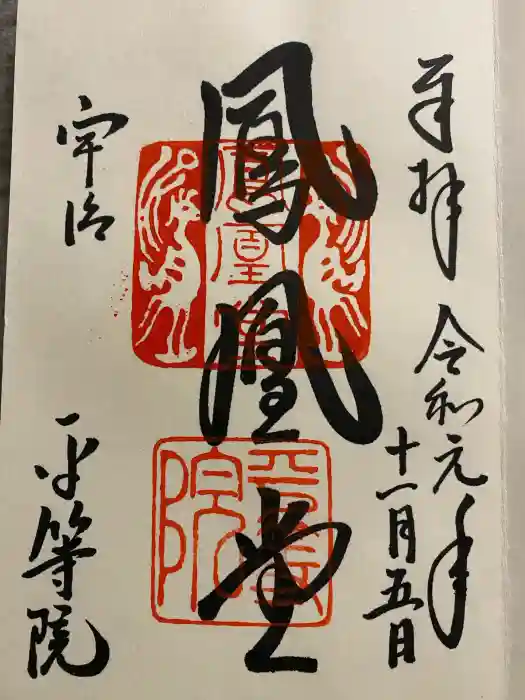 奉拝
令和元年
十一月五日
鳳凰堂
鳳凰堂
平等院
宇治
平等院